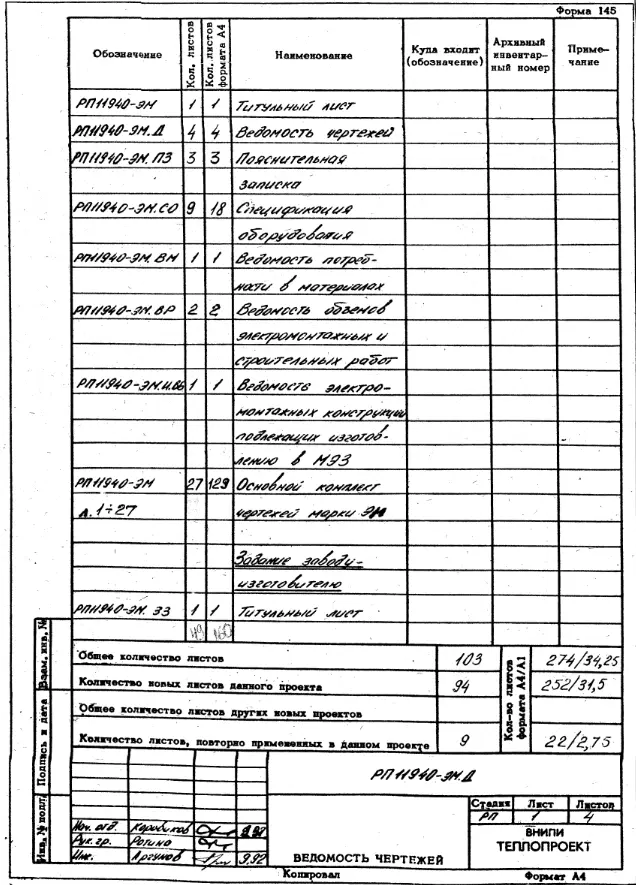 Форма 145
Обозначение Кол. листов Кол. листов формата А4 Наименование Куда входит (обозначение) Архивный инвентарный номер Примечание
РП11940-ЭМ 1 1 Титульный лист
РП11940-ЭМ.Д 4 4 Ведомость чертежей
РП11940-ЭМ.ПЗ 3 3 Пояснительная
записка
РП11940-ЭМ.СО 9 18 Спецификация
оборудования
РП11940-ЭМ.ВМ 1 1 Ведомость потреб-
ности в материалах
РП11940-ЭМ.ВР 2 2 Ведомость объемов
электромонтажных и
строительных работ
РП11940-ЭМ.И. 1 1 Ведомость электро-
монтажных конструкций
подлежащих изготов-
лению в МЭЗ
РП11940-ЭМ 27 129 Основной комплект
л. 1÷27 чертежей марки ЭМ
Задание заводу-
изготовителю
РП11940-ЭМ.ЭЗ 1 1 Титульный лист
49 160
Общее количество листов 103 274/34,25
Количество новых листов данного проекта 94 252/31,5
Общее количество листов других новых проектов
Количество листов, повторно примененных в данном проекте 9 22/2,75
Кол-во листов формата А4/А1
Взам. инв. №
Подпись и дата
Инв. № подл.
РП11940-ЭМ.Д
Стадия Лист Листов
РП 1 4
Нач. отд. 9.92
Рук. гр. Рогино
Инж. 9.92
ВЕДОМОСТЬ ЧЕРТЕЖЕЙ
ВНИПИ
ТЕПЛОПРОЕКТ
Копировал Формат А4